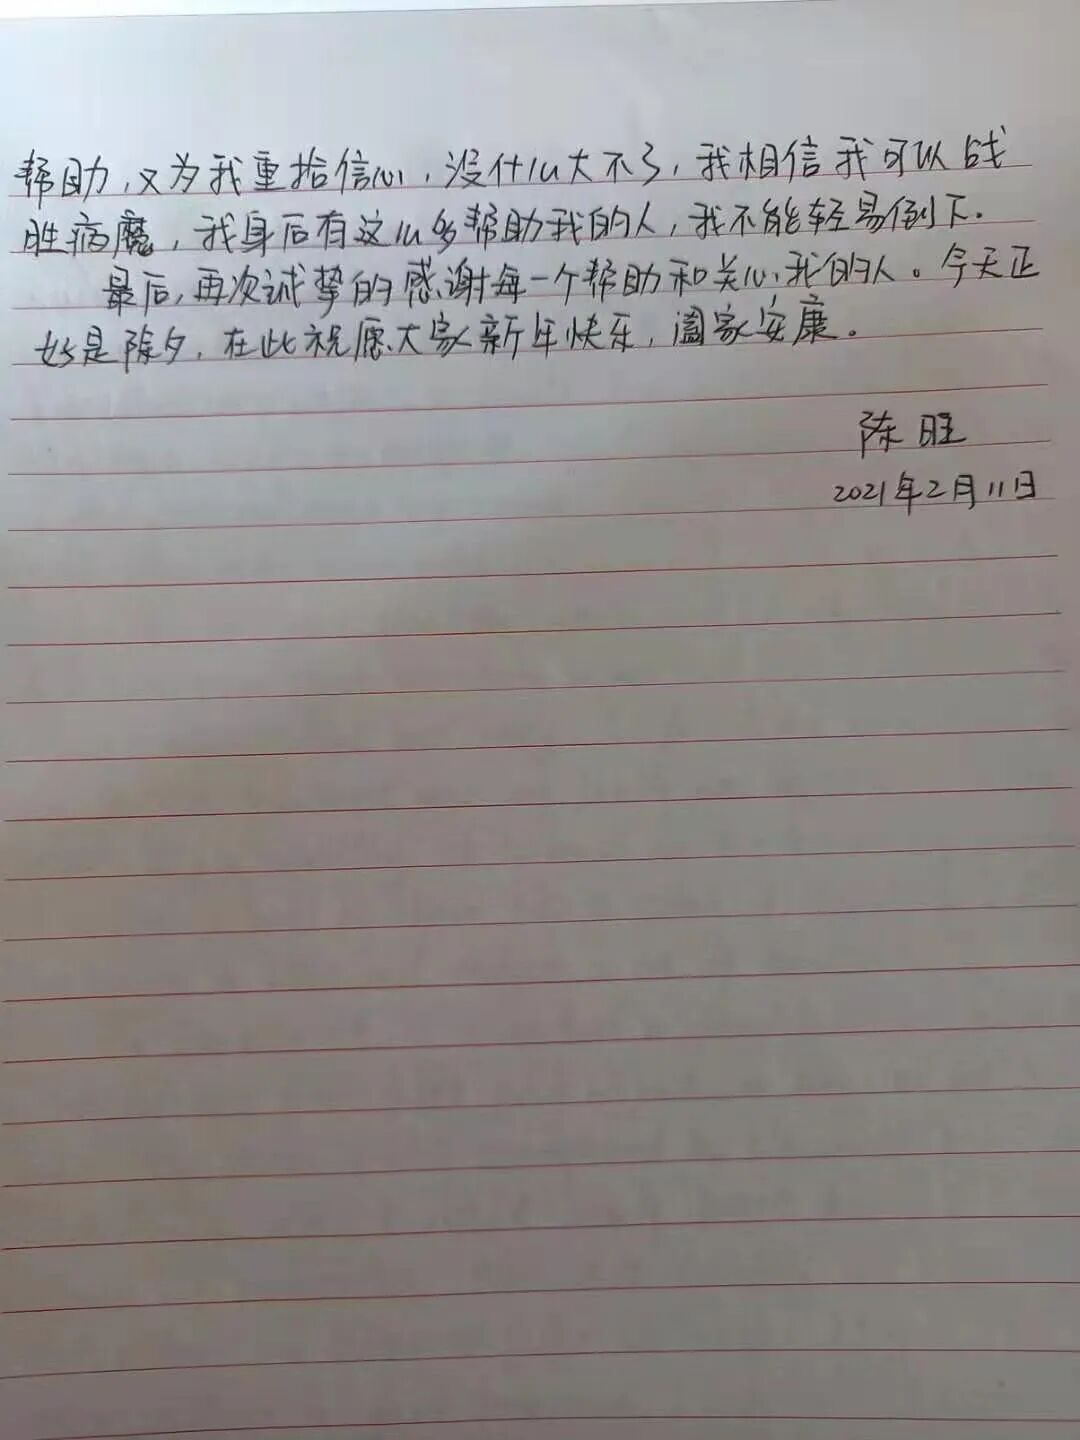 帮助，又为我重拾信心，没什么大不了，我相信我可以战
胜病魔，我身后有这么多帮助我的人，我不能轻易倒下.
最后，再次诚挚的感谢每一个帮助和关心我的人。今天正
好是除夕，在此祝愿大家新年快乐，阖家安康。
陈旺
2021年2月11日